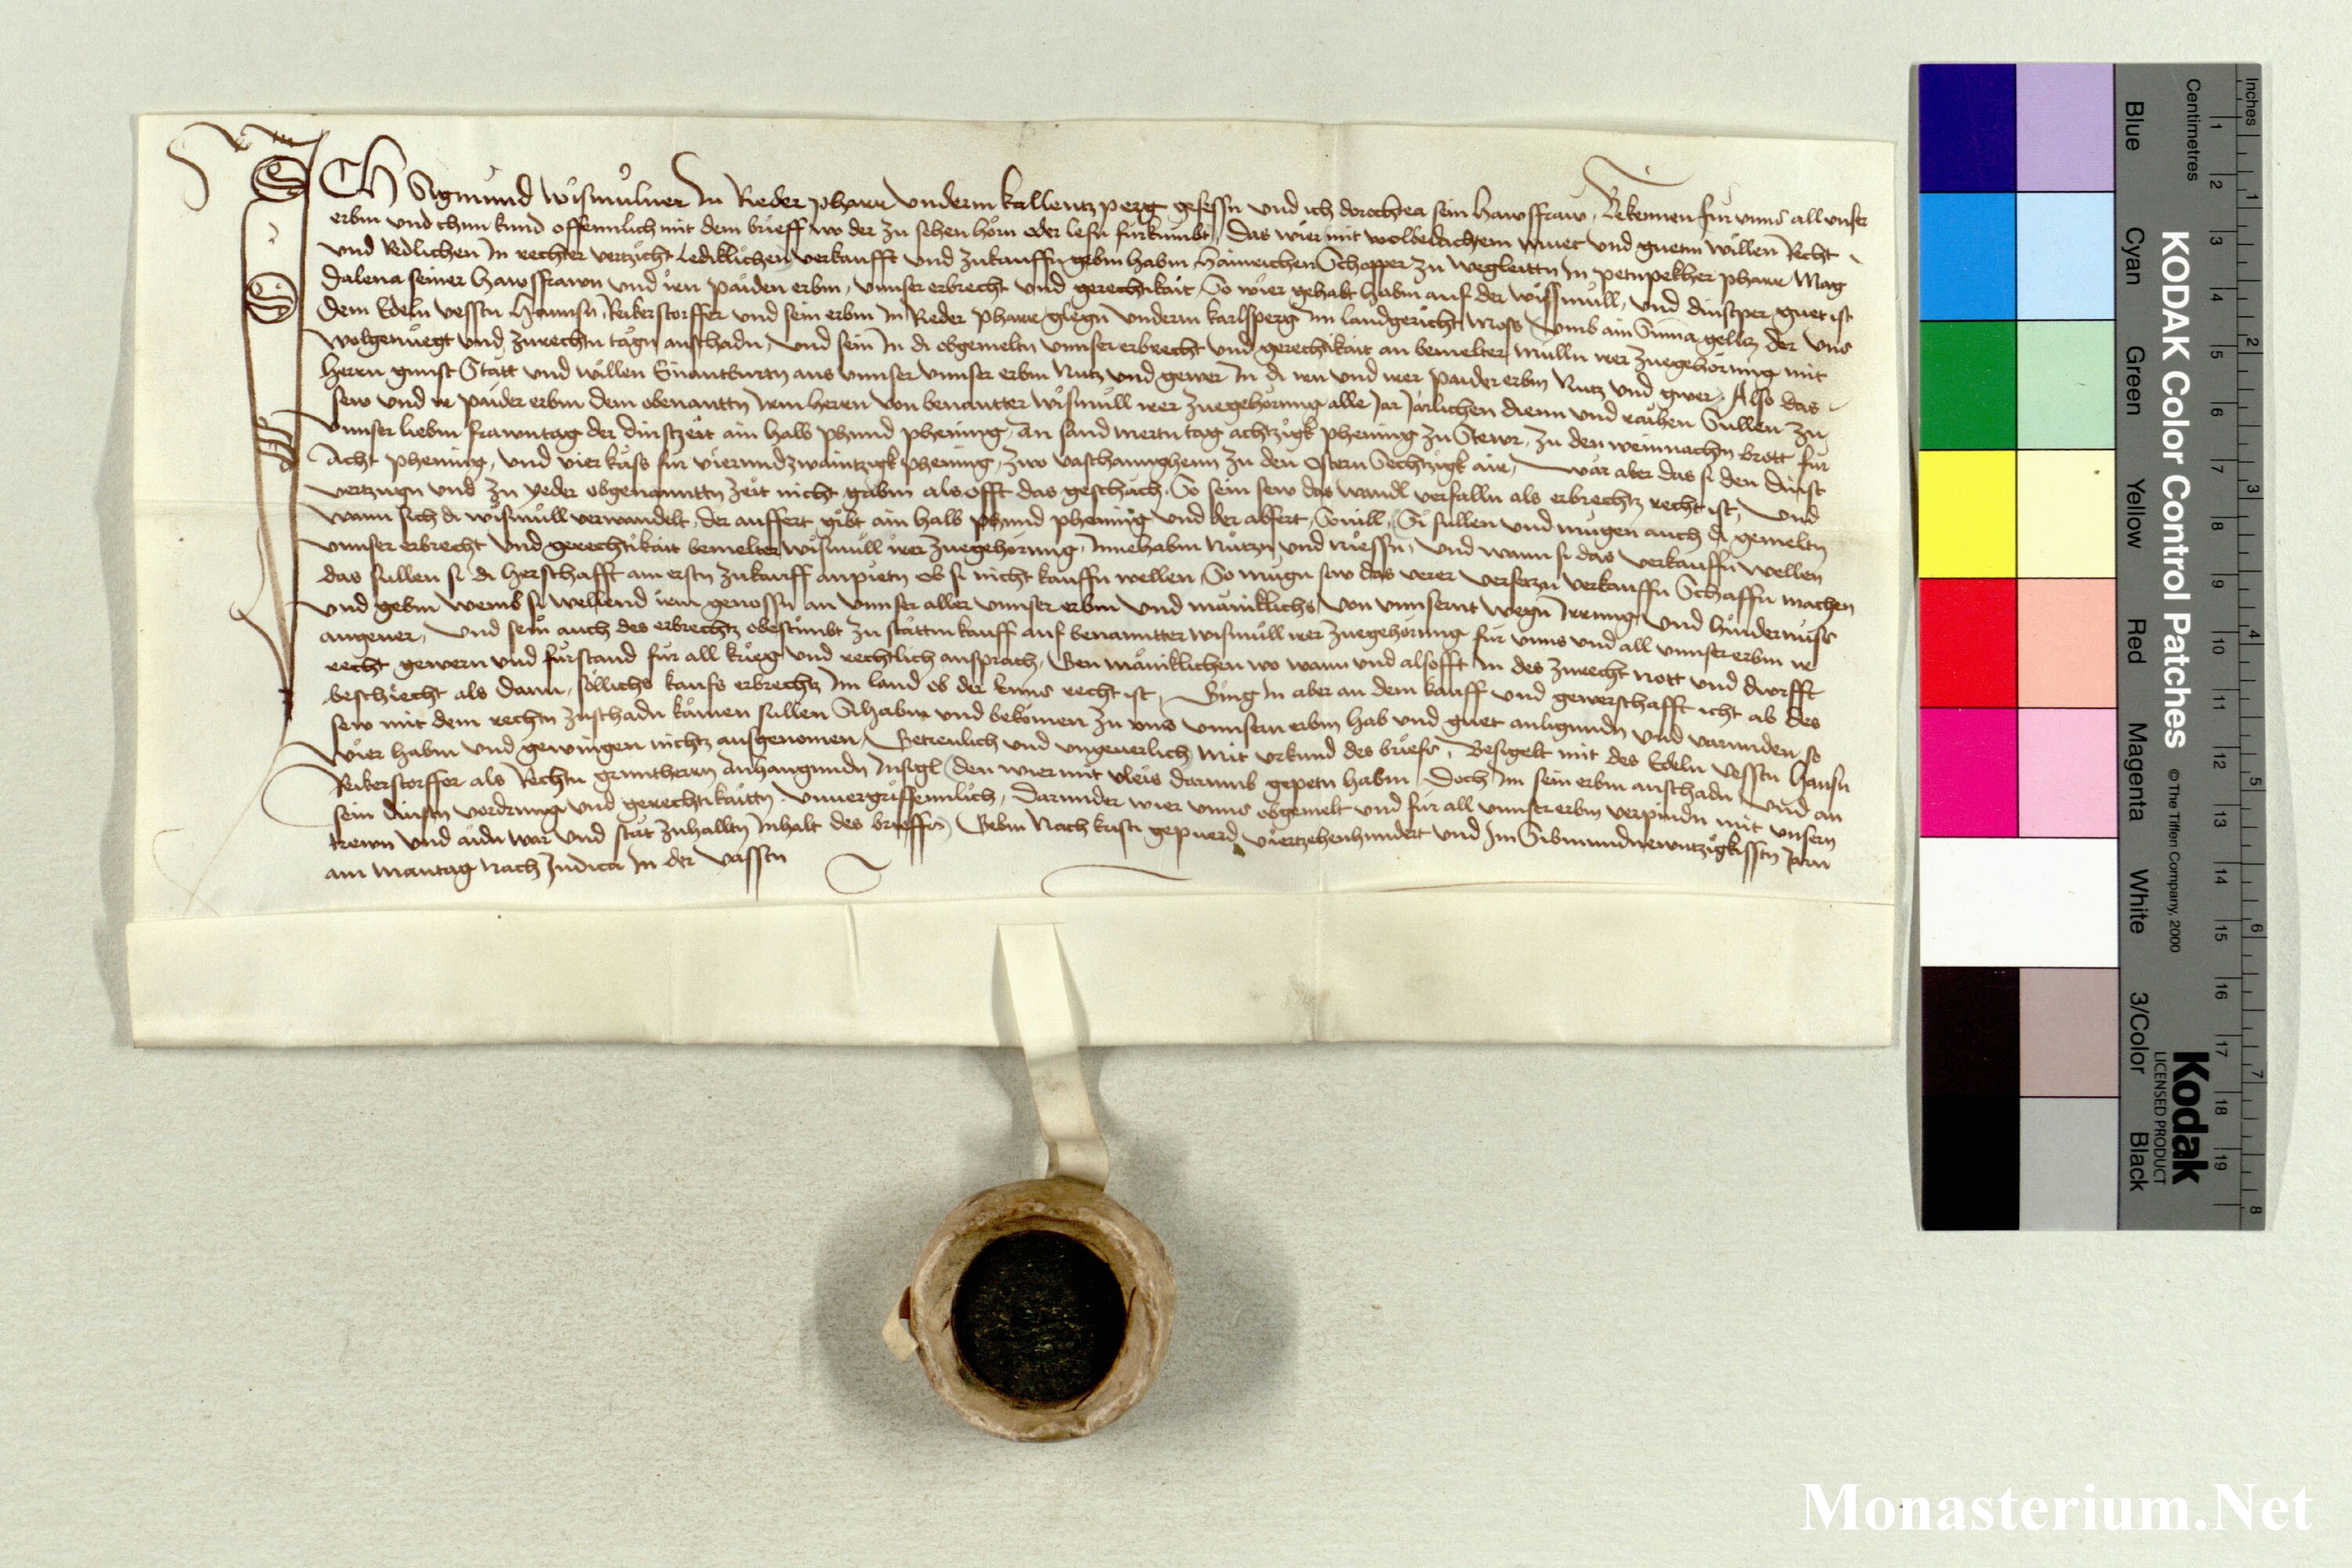 ICH Sigmund wismulner In Rieder pharr underm kallentzperg gesessn und ich dorothea sein hawsfraw, Bekennen fur unns all unser
erbm und thun kund offennlich mit dem brieff wo der zu sehen horn oder lesn furkumbt, Das wier mit wolbedachtem muet und guetm willen Recht
und Redlichen In rechter vertzicht Ledicklichen verkaufft und zukauffn gebm habm Hainreichen Schopper zu wegleittn In petnpekher pharr Mag
dalena seiner hawsfrawn und iren paiden erbm, unnser erbrecht und gerechtikait, So wier gehabt habm auf der wissmull, und dinstper guet ist
dem Edeln vesstn Hannsn Reikerstorffer und sein erbm In Reder pharr glegn underm karlsperg Im landgericht Moss umb ain Suma geltz der uns
wolgenuegt und zurechtn tagn anschadn, und sein In di obgemeltn unnser erbrecht und gerechtikait an bemelter mulln irer zuegehorung mit
herrn gunst Statt und willen Einantburtn aus unnser unnser erbm Nutz und gewer In di iren und irer paider erbm Nutz und gwer, Also das
sew und ir paider erbm dem obenanttn irem herrn von benantter wismull irer zuegehorung alle Jar Jarlichen dienn und raihen Sullen zu
unnser liebm frawntag der dinstzeit ain halb phund phening, An sand mertn tag achtzigk phening zu Stewr, zu den weinnachtn brott fur
Acht phening, und vier kass fur vierundzwaintzigk phening, zwo vaschannghenn zu den Ostern Sechtzigk air, war aber das si den dinst
vertzugn und zu yeder obgenanntn zeit nicht gabm als offt das geschach, So sein sew das wandl verfalln als erbrechtz recht ist, und
wann sich di wismull verwandelt, der auffert gibt ain halb phund phening und der abfert Sovill, Si sullen und mugen auch di gemeltn
unnser erbrecht und gerechtikait bemelter wismull irer zuegehorung, Innehabm Nutzn und niessn, und wann si das verkauffn wellen
das sullen si di herschafft am erstn zukauff anpietn Ob si nicht kauffn wellen, So mugn sew das verer versetzn verkauffn Schaffn machen
und gebm wemb si wellend irem genossn an unnser aller unnser erbm und mainklichs von unnsernt wegn Irrung und hindernuss
angever, und sein auch des erbrechtz obestimbt zu stattm kauff auf benanntter wismull irer zuegehorung fur unns und all unnser erbm ir
recht gewern und furstand fur all krieg und rechtlich ansprach, Gen mainklichen wo wann und alsofft In des zurecht nott und durfft
beschiecht als dann, sollichs kaufs erbrechtz Im land ob der Enns recht ist, Gung In aber an dem kauff und gewerschafft icht ab des
sew mit dem rechtn zuschadn komen sullen Si habm und bekomen zu uns unnsern erbm hab und guet anligundn und varunden so
wier habm und gewingen nichtz ausgenomen, Getreulich und ungeverlich Mit urkund des briefs, Besigelt mit des Edeln vesstn Hansn
Reikerstorffer als Rechtn gruntherrn Anhangundn Insigl den wier mit vleis darumb gepetn habm Doch Im sein erbm anschadn und an
sein dinstn vordrung und gerechtikaittn unvergriffennlich, Darunder wier unns obgemelt und fur all unnser erbm verpindn mit unsern
trewn und aidn war und stat zuhalltn Inhalt des brieffs, Gebm Nach kristi gepuerd viertzehenhundert und Im Sibmundnewntzigkisstn Jarn
am Mantag nach Judica In der vasstn
KODAK Color Control Patches © The Tiffen Company, 2000
Kodak
LICENSED PRODUCT
Blue Cyan Green Yellow Red Magenta White 3/Color Black
Centimetres 1 2 3 4 5 6 7 8 9 10 11 12 13 14 15 16 17 18 19
Inches 1 2 3 4 5 6 7 8
Monasterium.Net